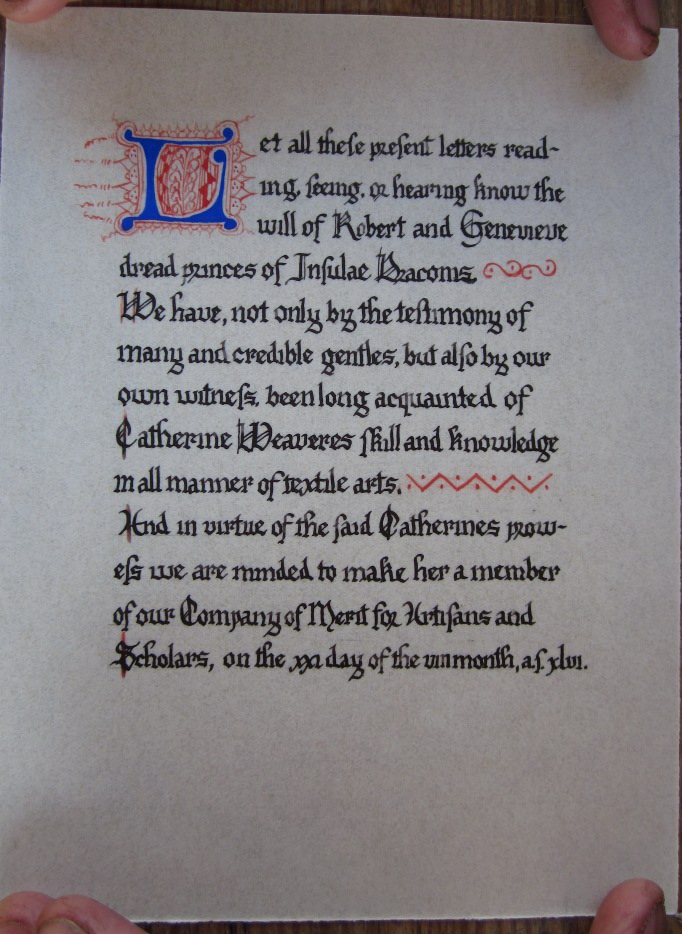 Let all theſe preſent letters read-
ing, ſeeing, or hearing know the
will of Robert and Genevieve
dread princes of Inſulae Draconis.
We have, not only by the teſtimony of
many and credible gentles, but alſo by our
own witneſs, been long acquainted of
Catherine Weaveres ſkill and knowledge
in all manner of textile arts.
And in virtue of the ſaid Catherines prow-
eſs we are minded to make her a member
of our Company of Merit for Artiſans and
Scholars, on the xxi day of the viii month, a.ſ. xlvi.